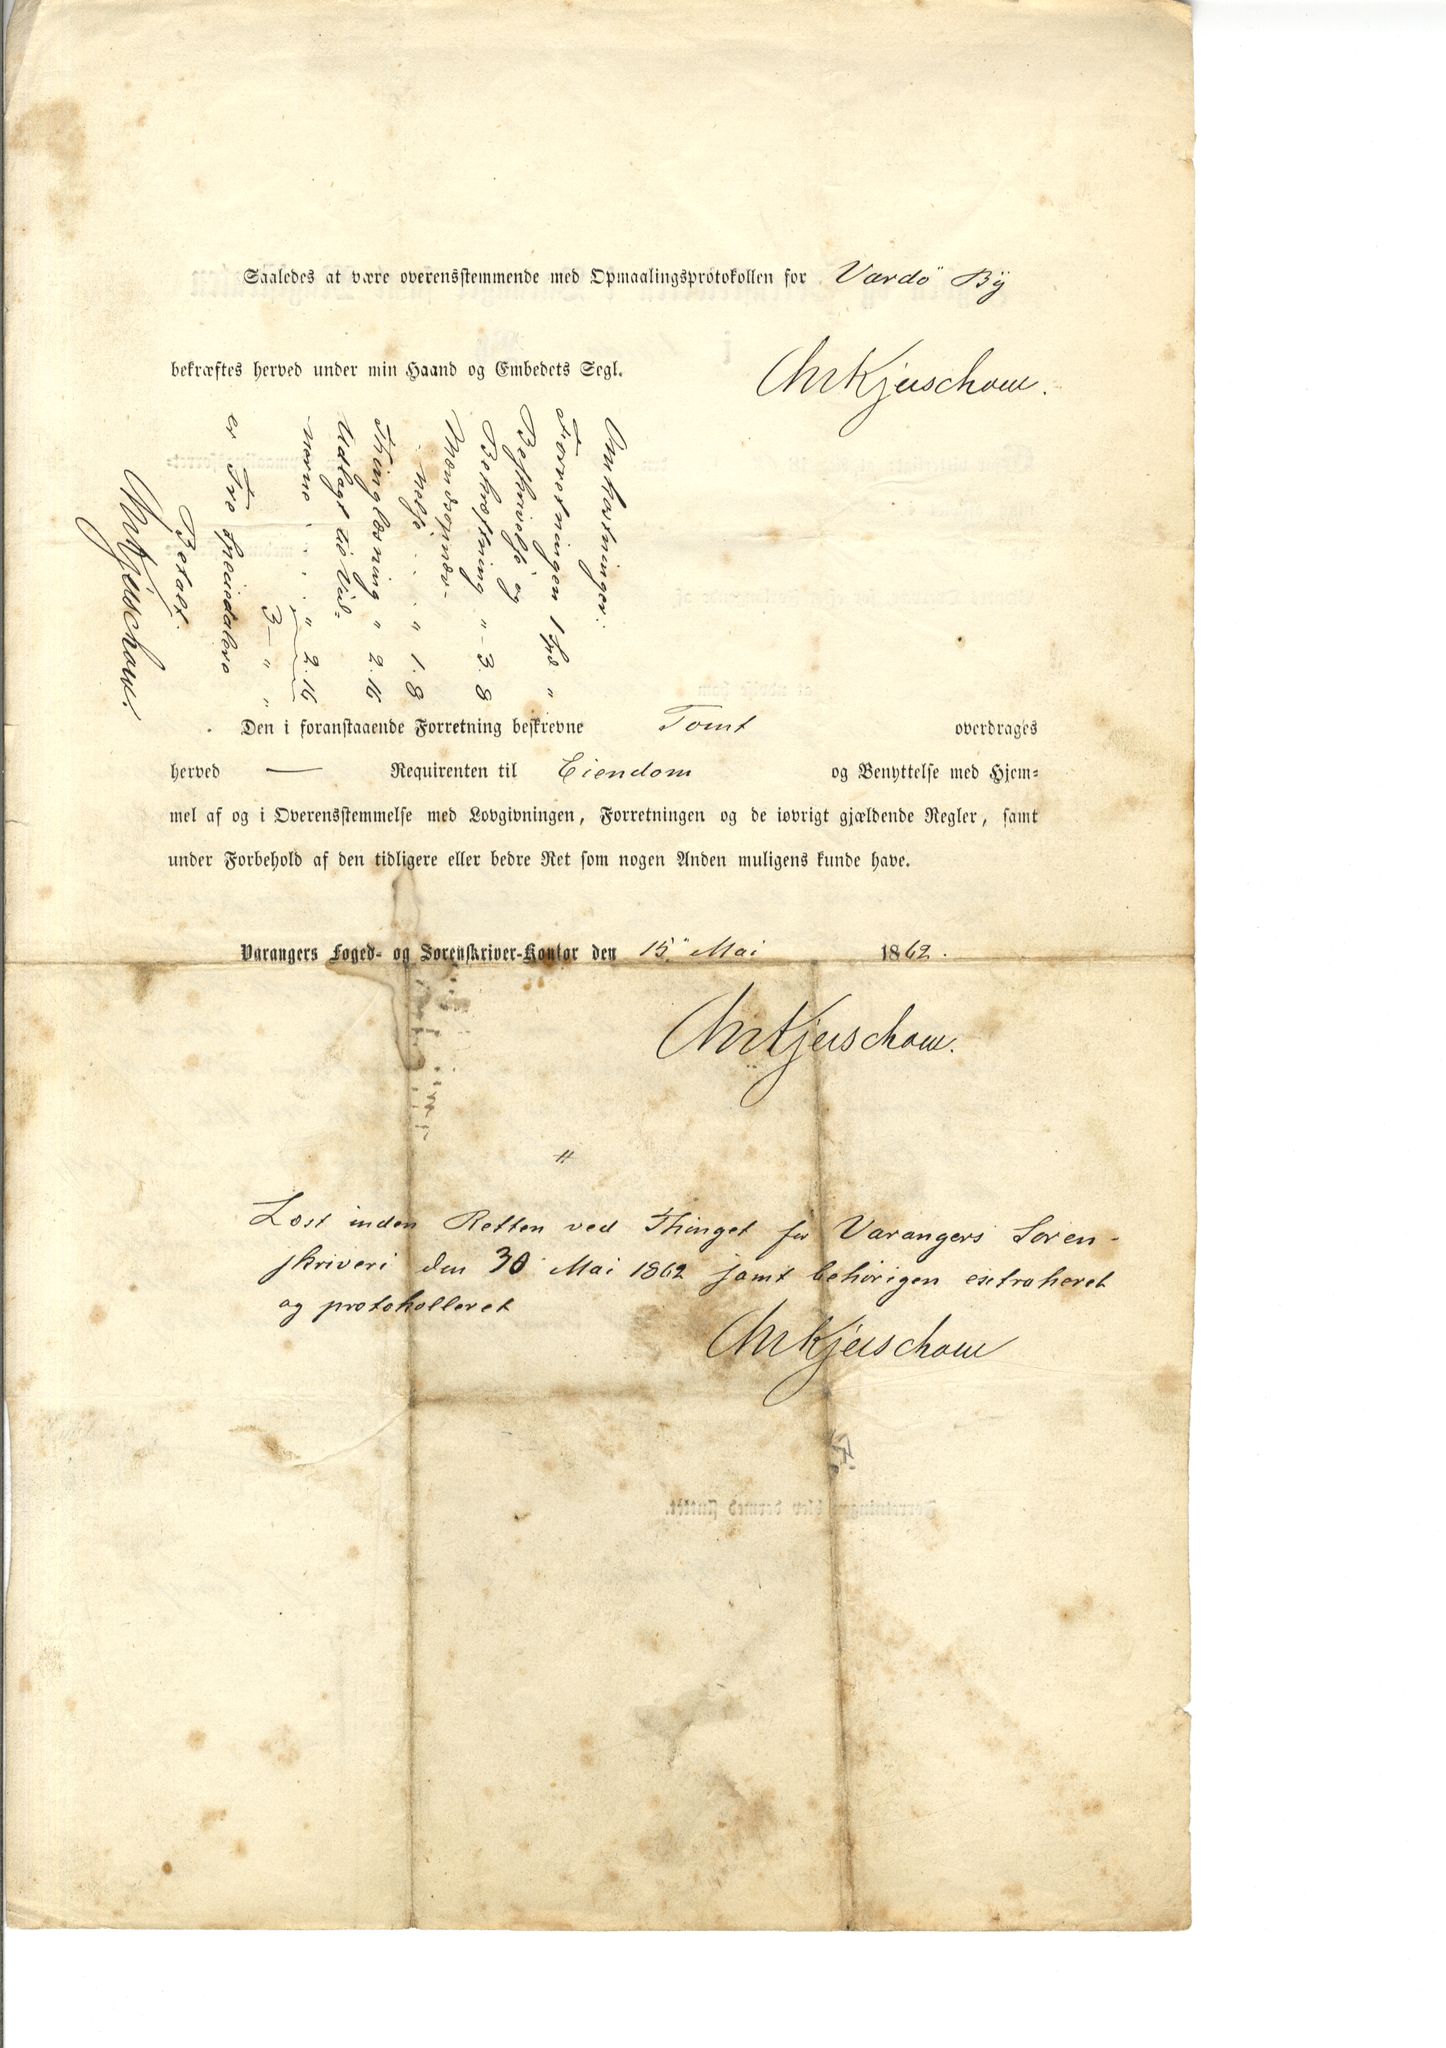 Saaledes at være overensstemmende med Opmaalingsprotokollen for Vardö By
bekræftes herved under min Haand og Embedets Segl.
Chr Kjerschow.
Omkostninger:
Forretningen 1 Spd "
Beskrivelse og
Bekræftning " - 3. 8
Mændsopnæv-
nelse . . " 1. 8
Thinglæsning " 2. 16
Udlagt til Vid-
nerne . . . " 2. 16
3 - " "
er Tre Speciedalere
Betalt.
Chr Kjerschow.
Den i foranstaaende Forretning beskrevne Tomt overdrages
herved — Requirenten til Eiendom og Benyttelse med Hjem-
mel af og i Overensstemmelse med Lovgivningen, Forretningen og de iøvrigt gjældende Regler, samt
under Forbehold af den tidligere eller bedre Ret som nogen Anden muligens kunde have.
Varangers Foged- og Sorenskriver-Kontor den 15 Mai 1862.
Chr Kjerschow.
"
Læst inden Retten ved Thinget for Varangers Soren-
skriveri den 30 Mai 1862 samt behörigen extraheret
og protokolleret
Chr Kjerschow
Forretningen blev dermed sluttet.